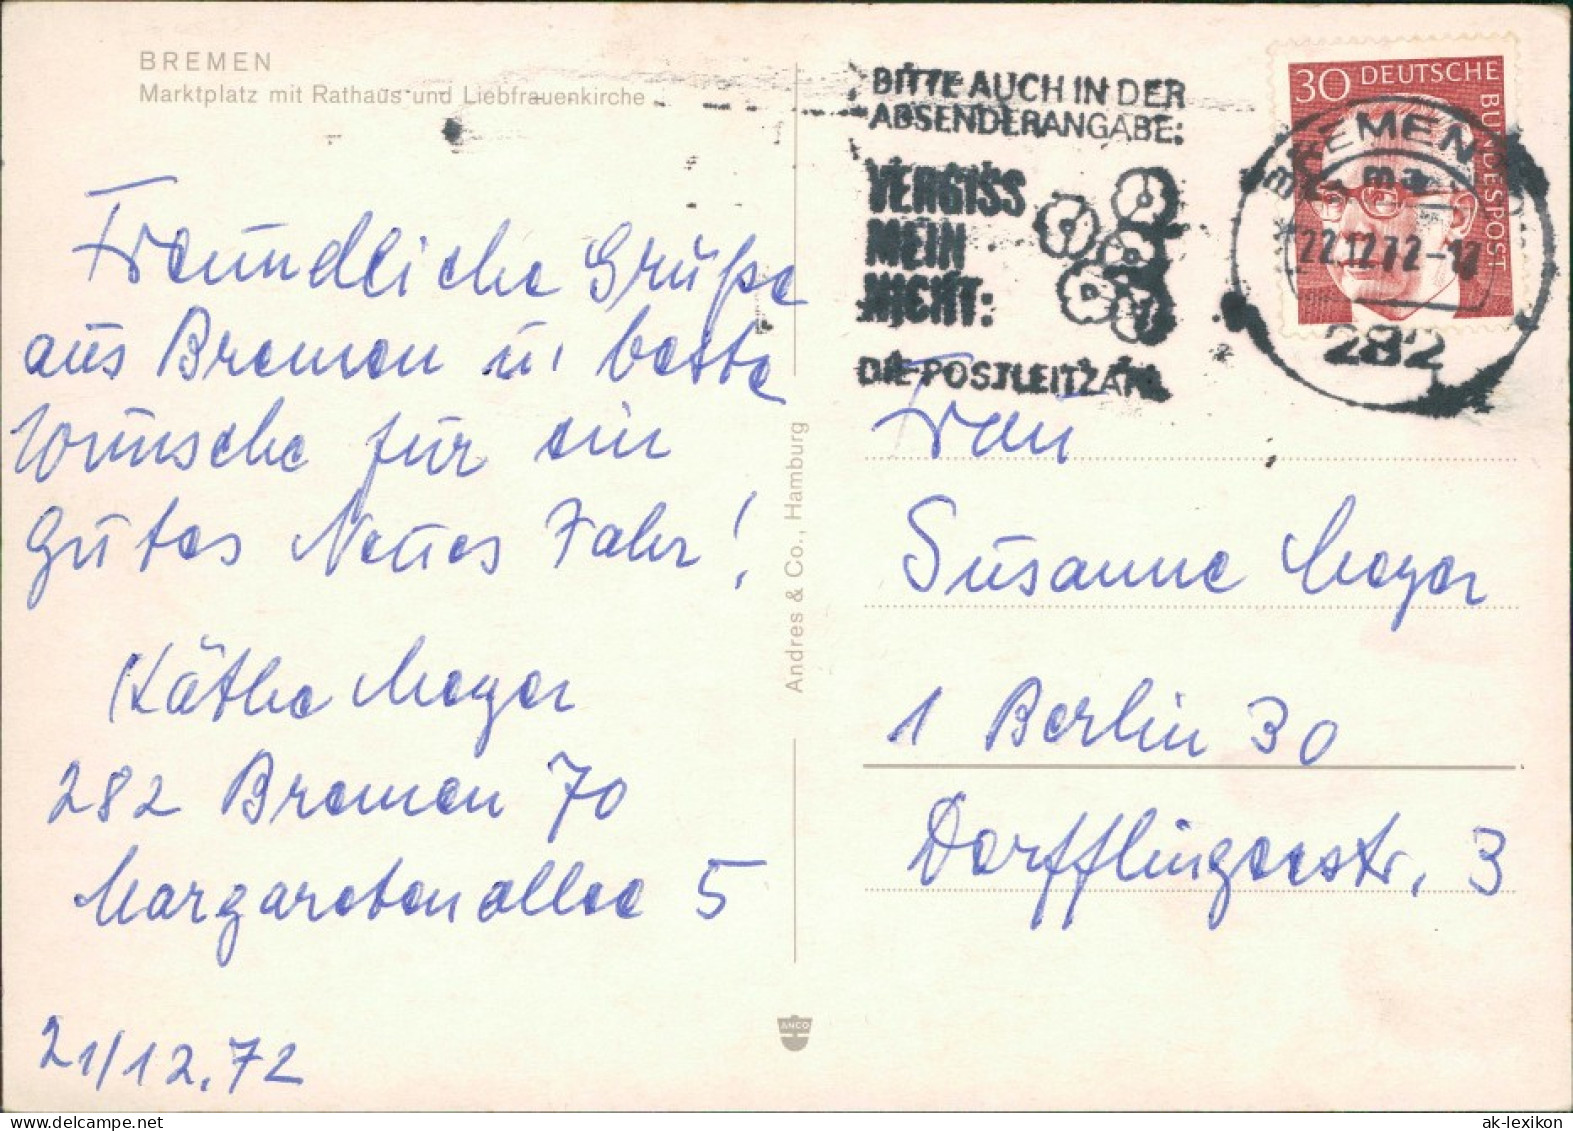 BREMEN
Marktplatz mit Rathaus und Liebfrauenkirche
Freundliche Grüße
aus Bremen u. beste
Wünsche für ein
gutes Neues Jahr!
Käthe Meyer
282 Bremen 70
Margaretenallee 5
21/12.72
Andres & Co., Hamburg
ANCO
BITTE AUCH IN DER
ABSENDERANGABE:
VERGISS
MEIN
NICHT:
DIE POSTLEITZAHL
30 DEUTSCHE
BUNDESPOST
BREMEN
22.12.72-12
282
Frau
Susanne Meyer
1 Berlin 30
Dörfflingerstr. 3
ak-lexikon
delcampe.net